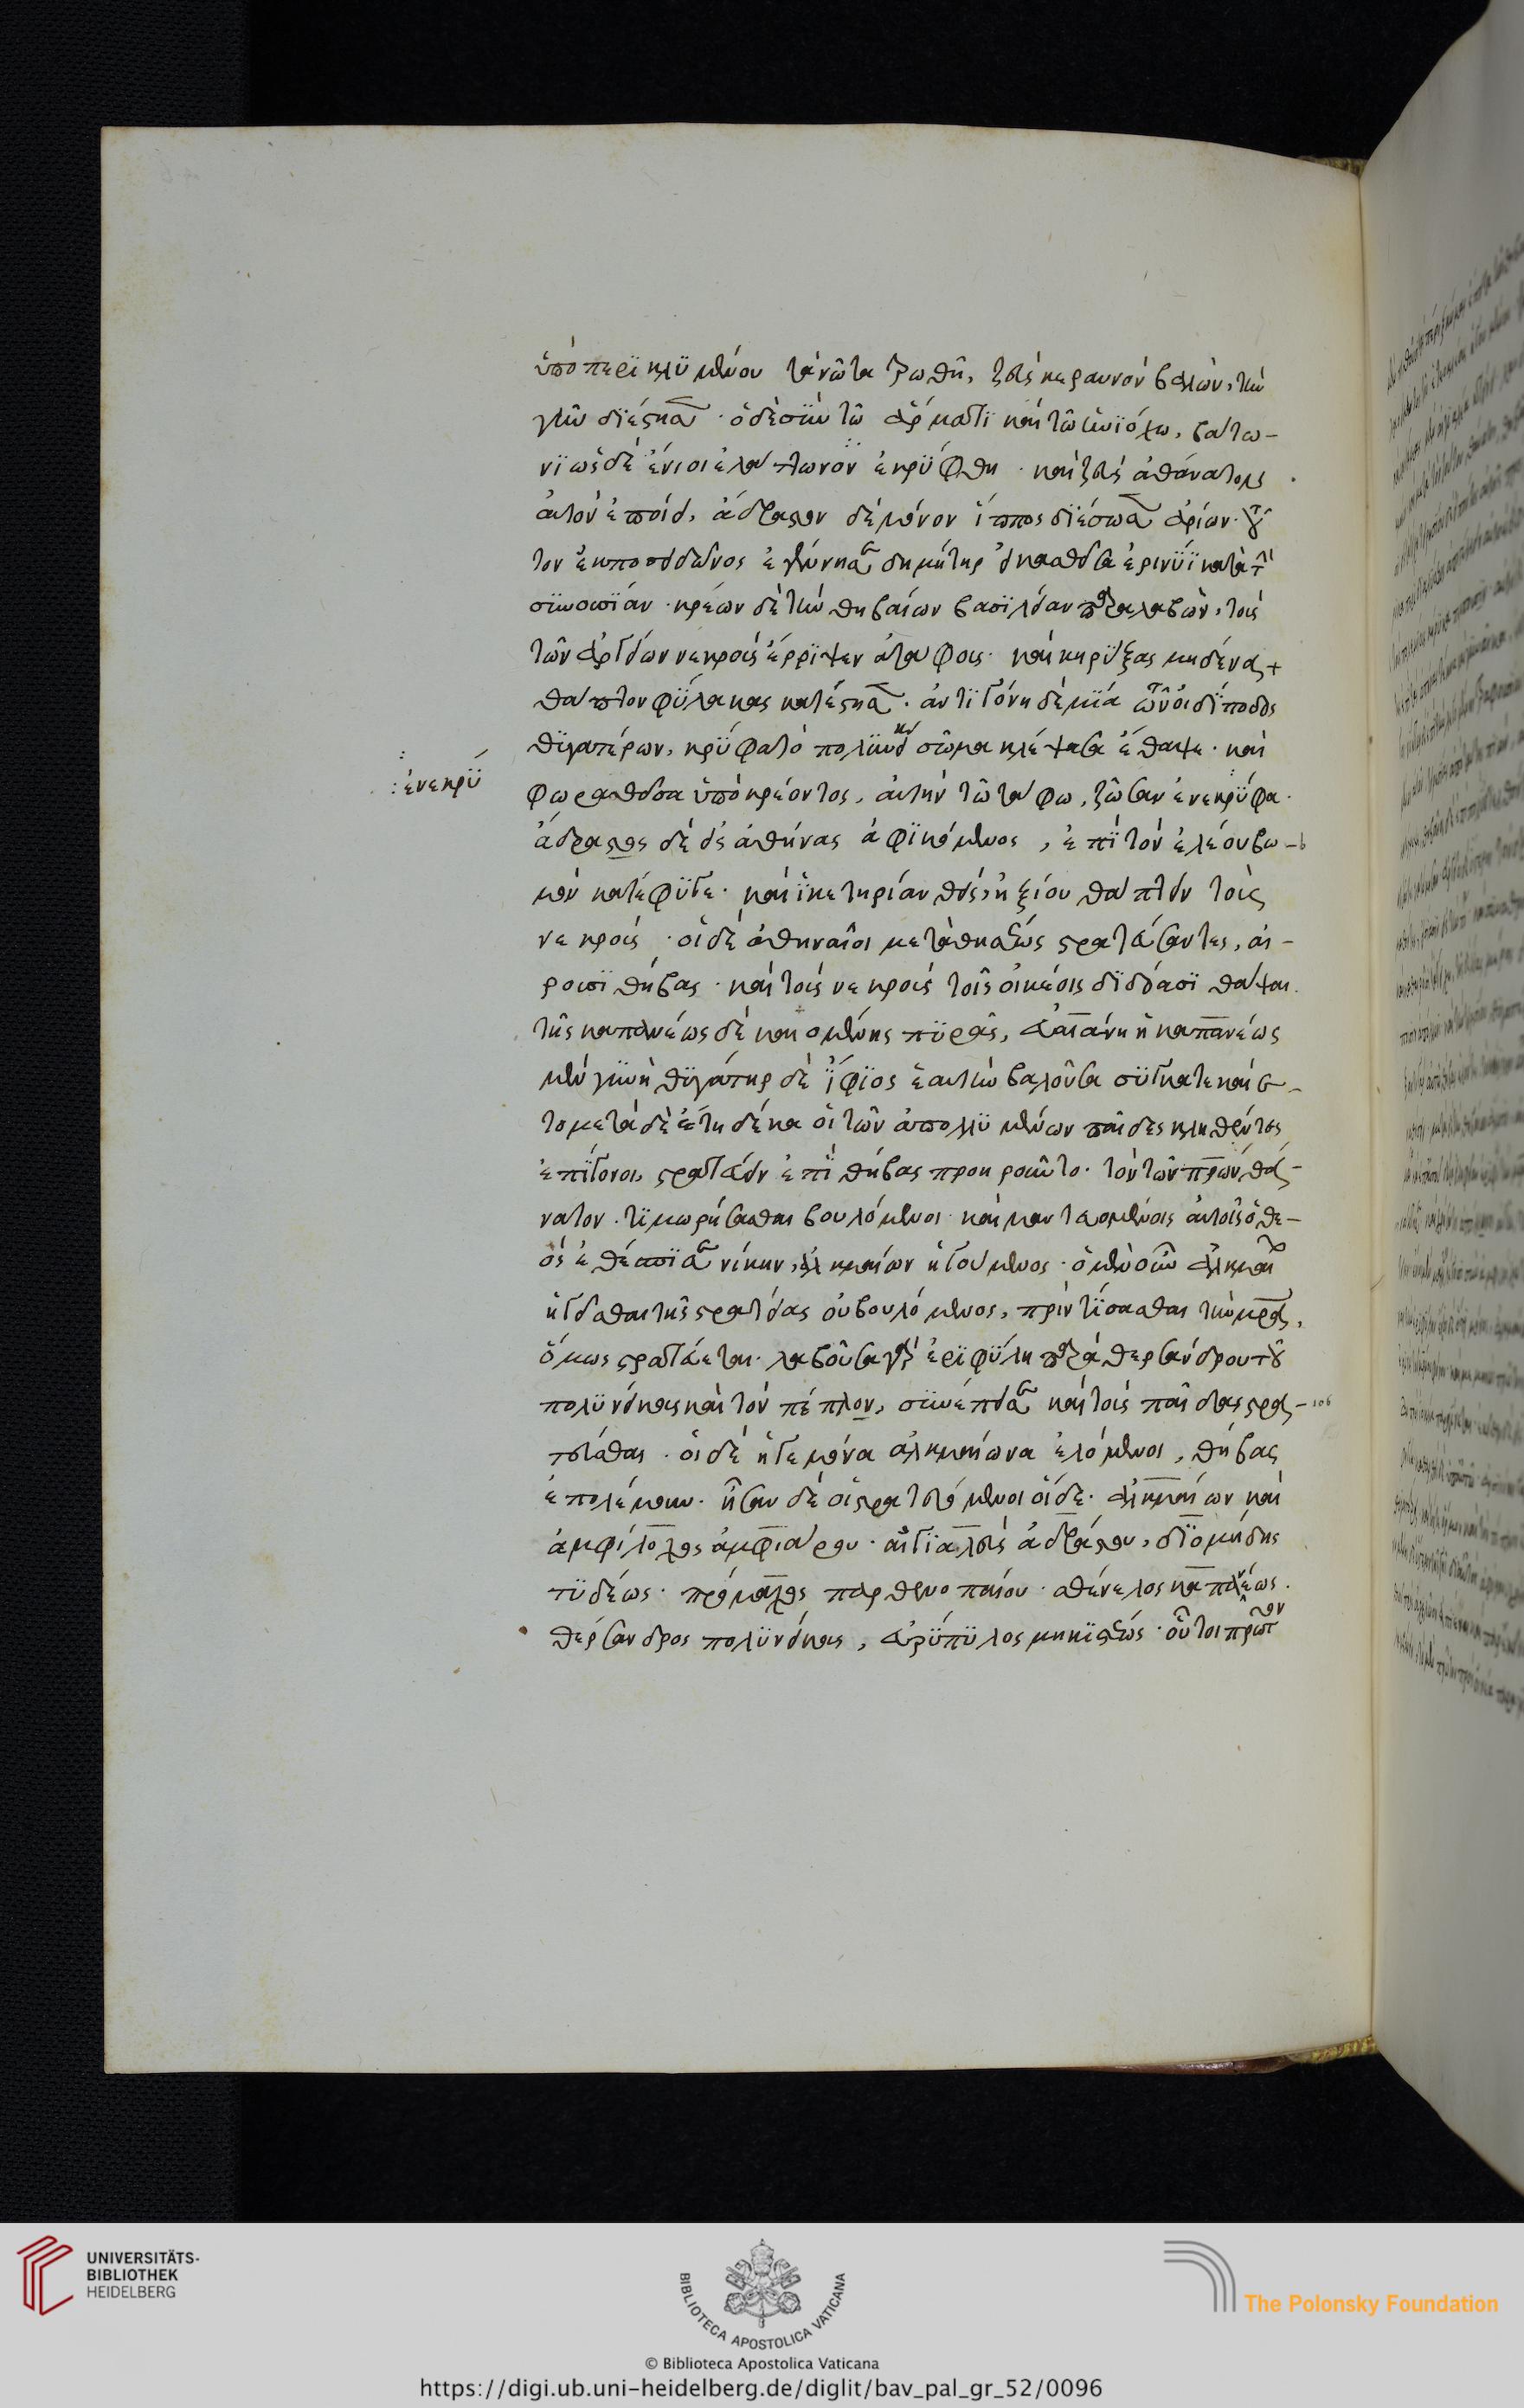 ὑπὸ περϊκλϋμένου τὰ νῶτα τρωθῆ, ζεὺς κεραυνὸν βαλὼν, τὴν
γῆν διέστησεν · ὁ δὲ σὺν τῶ ἅρματϊ καὶ τῶ ἡνϊόχω, βάτω–
νϊ ὡς δὲ ἔνιοι ἐλάττωνον ἐκρϋφθη · καὶ ζεὺς ἀθάνατον
αὐτὸν ἐποίει, ἄδραστον δὲ μόνον ἵππος διέσωσεν ἀρίων · τοῦ
τον ἐκ ποσειδῶνος ἐγέννησε δημήτηρ εἰκασθεῖσα ἐρινϋϊ κατὰ τὴν
συνουσίαν · κρέων δὲ τὴν θηβαίων βασϊλείαν παραλαβὼν, τοὺς
τῶν ἀργείων νεκροὺς ἔρρϊψεν ἀτάφους · καὶ κηρϋξας μηδένα
θάπτειν φϋλακας κατέστησεν · ἀντϊγόνη δὲ μϊα τῶν οἰδϊποδος
θϋγατέρων, κρϋφα τὸ πολϋνείκους σῶμα κλέψασα ἔθαψε · καὶ
:ἐνεκρϋ
φωραθεῖσα ὑπὸ κρέοντος, αὐτὴν τῶ τάφω, ζῶσαν ἐνεκρϋφα ·
ἄδραστος δὲ εἰς ἀθήνας ἀφϊκόμενος, ἐπϊ τὸν ἐλέου βω–
μὸν κατέφϋγε · καὶ ϊκετηρίαν θεὶς, ἠξίου θάπτειν τοὺς
νεκροὺς · οἱ δὲ ἀθηναῖοι μετὰ θησέως στρατεύσαντες, αἱ–
ροῦσϊ θήβας · καὶ τοὺς νεκροὺς τοῖς οἰκείοις διδόασϊ θάψαι.
τῆς καπανέως δὲ καιομένης πϋρᾶς, εὐάνη ἡ καπανέως
μὲν γϋνὴ θϋγάτηρ δὲ ἴφϊος ἑαυτὴν βαλοῦσα σϋγκατεκαίε–
το μετὰ δὲ ἔτη δέκα οἱ τῶν ἀπολϋμένων παῖδες κληθέντες
ἐπϊγονοι, στρατεύειν ἐπϊ θήβας προηροῦντο · τὸν τῶν πατέρων θά–
νατον · τϊμωρήσασθαι βουλόμενοι · καὶ μαντευομένοις αὐτοῖς ὁ θε–
ὸς ἐθέσπϊσε νίκην, ἀλκμαίων ἡγούμενος · ὁ μὲν οὖν ἀλκμαίων
ἡγεῖσθαι τῆς στρατείας οὐ βουλόμενος, πρὶν τϊσασθαι τὴν μητέρα,
ὅμως στρατεύεται · λαβοῦσα γὰρ ἐρϊφϋλη παρὰ θερσάνδρου τοῦ
πολϋνείκους καὶ τὸν πέπλον, συνέπεισε καὶ τοὺς παῖδας στρα–
τεύεσθαι · οἱ δὲ ἡγεμόνα ἀλκμαίωνα ἑλόμενοι, θήβας
ἐπολέμουν · ἦσαν δὲ οἱ στρατευόμενοι οἵδε · ἀλκμαίων καὶ
ἀμφίλοχος ἀμφιαράου · αἰγϊαλεὺς ἀδράστου, διομήδης
τϋδέως · πρόμαχος παρθενοπαίου · σθένελος καπανέως ·
θέρσανδρος πολϋνείκους, εὐρϋπϋλος μηκϊστέως · οὗτοι πρῶτον
UNIVERSITÄTS-
BIBLIOTHEK
HEIDELBERG
BIBLIOTECA APOSTOLICA VATICANA
© Biblioteca Apostolica Vaticana
The Polonsky Foundation
https://digi.ub.uni-heidelberg.de/diglit/bav_pal_gr_52/0096